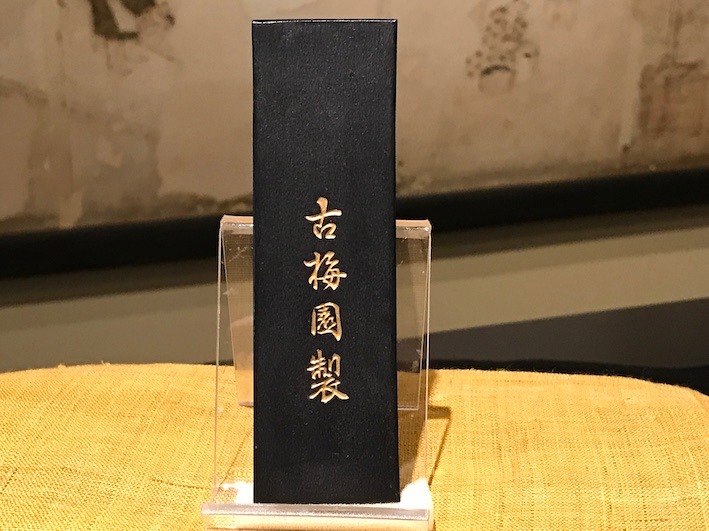 古梅園製